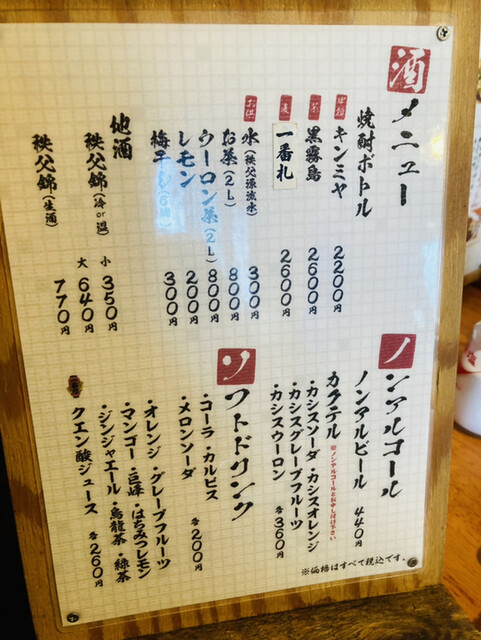 酒メニュー
焼酎ボトル
甲類 キンミヤ 2200円
芋 黒霧島 2600円
麦 一番札 2600円
お供 水(秩父源流水) 300円
お茶(2L) 800円
ウーロン茶(2L) 800円
レモン 200円
梅干し 300円
地酒
秩父錦(冷or温) 小 350円
大 640円
秩父錦(生酒) 770円
ノンアルコール
ノンアルビール 440円
カクテル ※ノンアルコールとお申し付け下さい
・カシスソーダ・カシスオレンジ
・カシスグレープフルーツ
・カシスウーロン 各360円
ソフトドリンク
・コーラ・カルピス
・メロンソーダ 各200円
・オレンジ・グレープフルーツ
・マンゴー・巨峰・はちみつレモン
・ジンジャエール・烏龍茶・緑茶
クエン酸ジュース 各260円
※価格はすべて税込です。